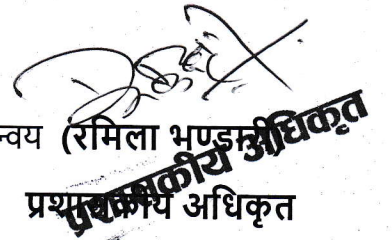 न्वय (रमिला भण्डारी)
प्रशासकीय अधिकृत
प्रशासकीय अधिकृत